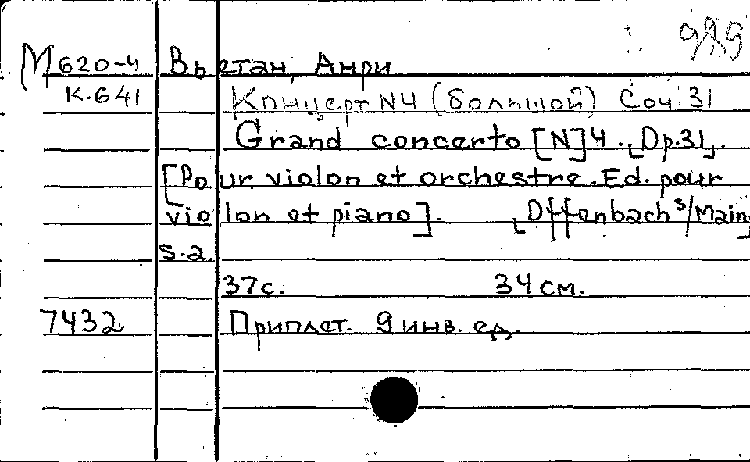 989
М620-4 Вьетан, Анри
К-641 Концерт N4 (большой) Соч 31
Grand concerto [N]4. Op.31.
[Pour violon et orchestre. Ed. pour
violon et piano]. Offenbach s/Main,
s.a.
37с. 34 см.
7432 Приплет. 9 инв. ед.